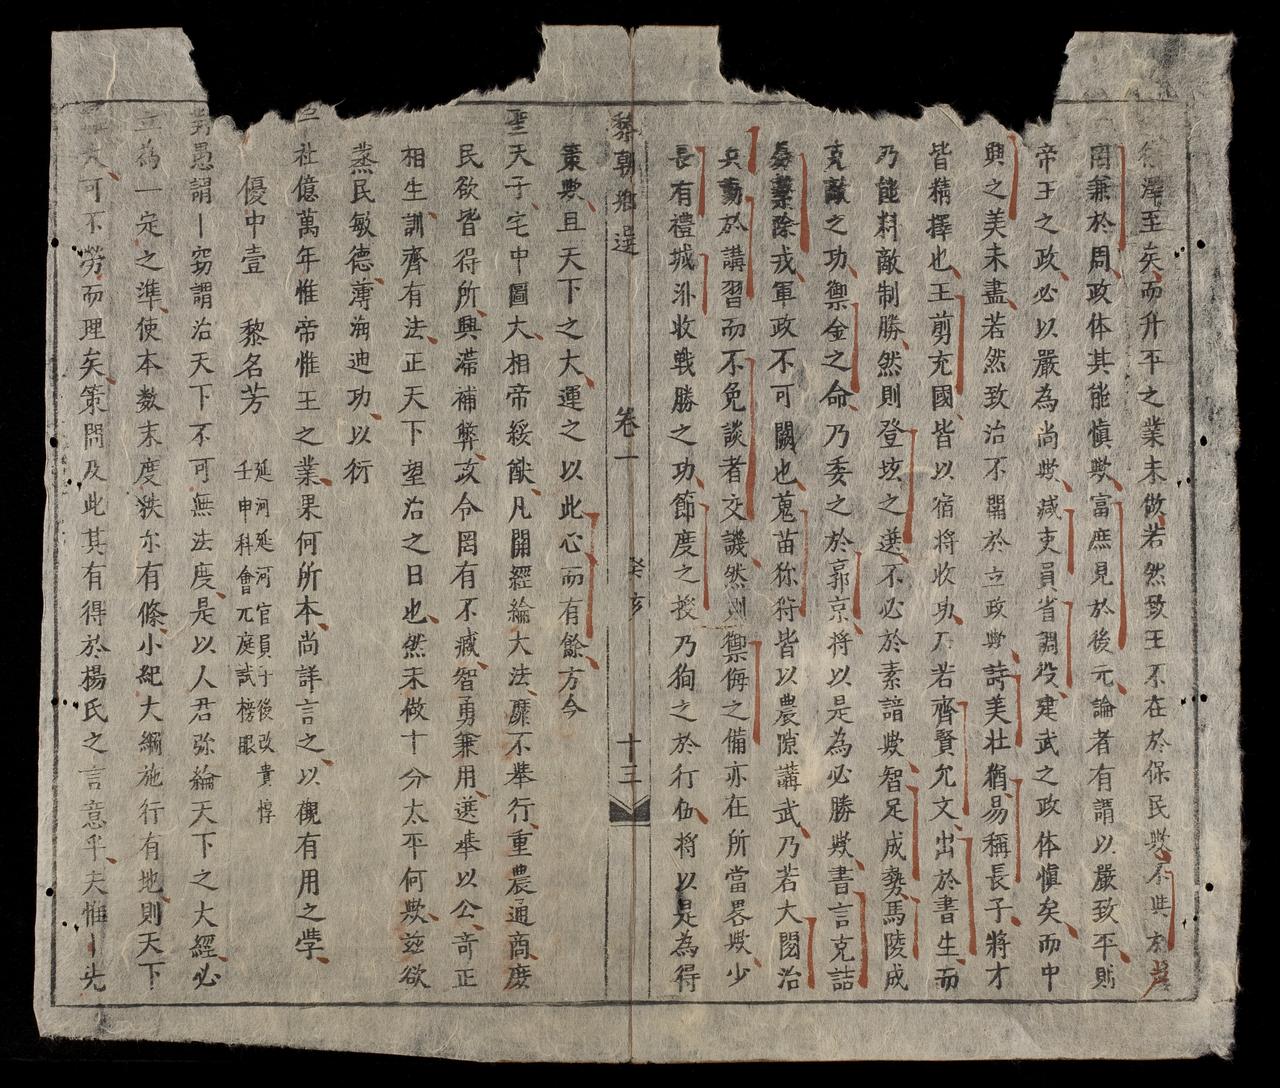 澤至矣而升平之業未做若然致王不在於保民歟不

罔兼於周政体其能慎歟富庶見於後元論者有謂以嚴致平則
帝王之政必以嚴為尚歟减吏員省調役建武之政体慎矣而中
興之美未盡若然致治不開於立政歟詩美壯猶易稱長子將才
皆精擇也王翦充國皆以宿将收功乃若齊賢允文出於書生而
乃能料敵制勝然則登坛之選不必於素諳歟智足成勢馬陵成
克敵之功禦金之命乃委之於郭京将以是為必勝歟書言克詰
除戎軍政不可闕也蒐苗狝狩皆以農隙講武乃若大閱治
兵動於講習而不免談者交譏然則禦侮之備亦在所當畧歟少
長有禮城外收戰勝之功節度之授乃徇之於行伍将以是為得
黎朝鄉選 卷一 癸亥 十三
策歟且天下之大運之以此心而有餘方今
聖天子宅中圖大相帝綏猷凡開經綸大法靡不举行重農通商度
民欲皆得所興滞補弊政令罔有不臧智勇兼用選举以公奇正
相生訓齊有法正天下望治之日也然未做十分太平何歟玆欲
蒸民敏德薄海迪功以衍
社億萬年惟帝惟王之業果何所本尚詳言之以観有用之学
優中壹 黎名芳 延河延河官員子後改貴惇
壬申科會元庭試榜眼
對愚謂窃謂治天下不可無法度是以人君弥綸天下之大經必
立為一定之準使本数末度秩尔有條小紀大綱施行有地則天下
大可不勞而理矣策問及此其有得於楊氏之言意乎夫惟先